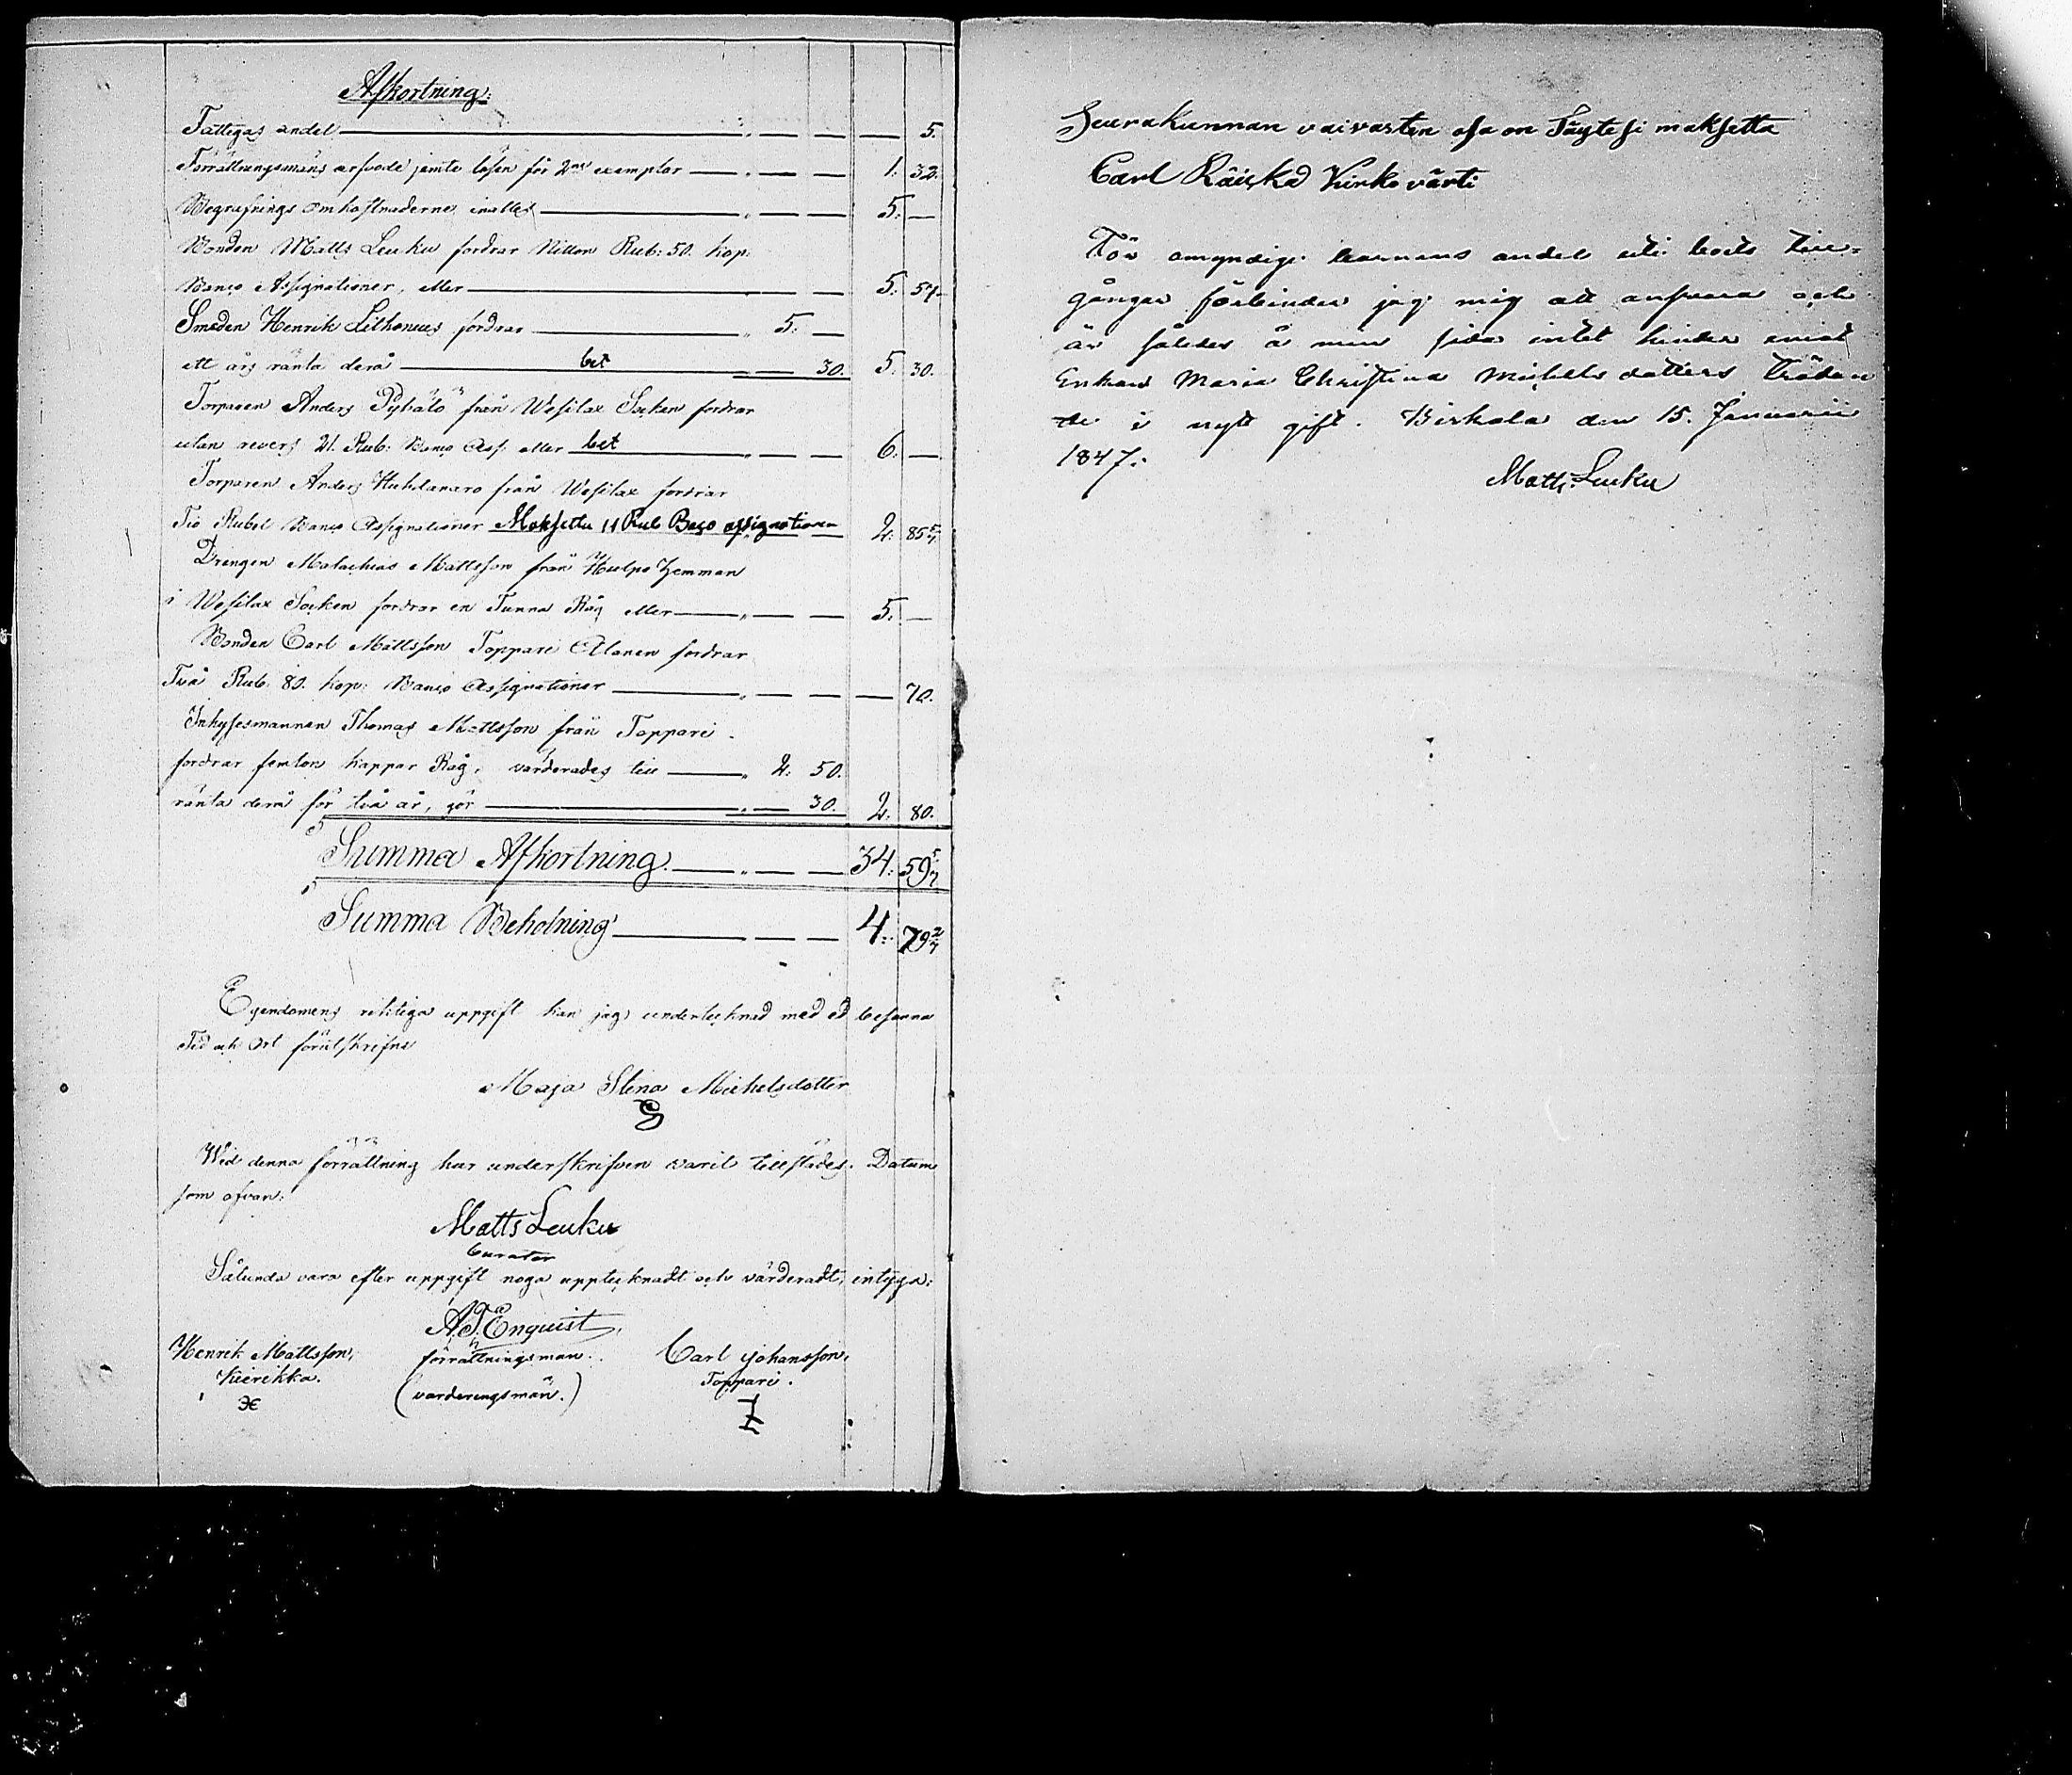 Afkortning:
Fattigas andel — — — 5.
Förrättningsmans arfvode jemte lösen för 2ne exemplar — — 1. 32.
Begrafnings omkostnaderne inalles — — 5. —
Bonden Matts Leuku fordrar Nitton Rub: 50. kop:
Banco Assignationer, eller — — 5. 57
Smeden Henrik Lithenius fordrar — 5. —
ett års ränta derå bet — 30. 5. 30.
Torparen Anders Pyhälö från Wesilax Socken fordrar
utan revers 21. Rub: Banco Ass: eller bet — — 6. —
Torparen Anders Huhdanaro från Wesilax fordrar
Tio Rubel Banco Assignationer Maksettu 11 Rub Baco assignationer — 2. 85 5/7
Drengen Malachias Mattsson från Hulpo hemman
i Wesilax Socken fordrar en Tunna Råg eller — — 5. —
Bonden Carl Mattsson Toppari Alanen fordrar
Två Rub. 80. kop: Banco Assignationer — — — 70.
Inhysesmannen Thomas Mattsson från Toppari
fordrar femton kappar Råg, värderades till — 2. 50.
ränta derå för två år, gör — 30. 2. 80.
Summa Afkortning. — — 34. 59 5/7
Summa Beholning — — 4. 79 2/7
Egendomens riktiga uppgift kan jag undertecknad med ed besanna
Tid och Ort förutskrifne
Maja Stina Michelsdotter
Wid denna förrättning har underskrifven varit tillstädes. Datum
som ofvan:
Matts Leuku
Curator
Sålunda vara efter uppgift noga upptecknadt och värderadt, intyga:
A. J. Enquist
Henrik Mattsson, förrättningsman. Carl Johansson,
Kierikka. (värderingsmän.) Toppari.
Seurakunnan vaivasten osa on Täytesi maksettu
Carl Räiskä Kirko värti
För omyndige barnens andel uti boets till-
gångar förbinder jag mig att ansvara och
är således å min sida intet hinder emot
Enkans Maria Christina Michels dotters träda n
de i nytt gift. Birkala den 15. Januarii
1847.
Matts Leuku